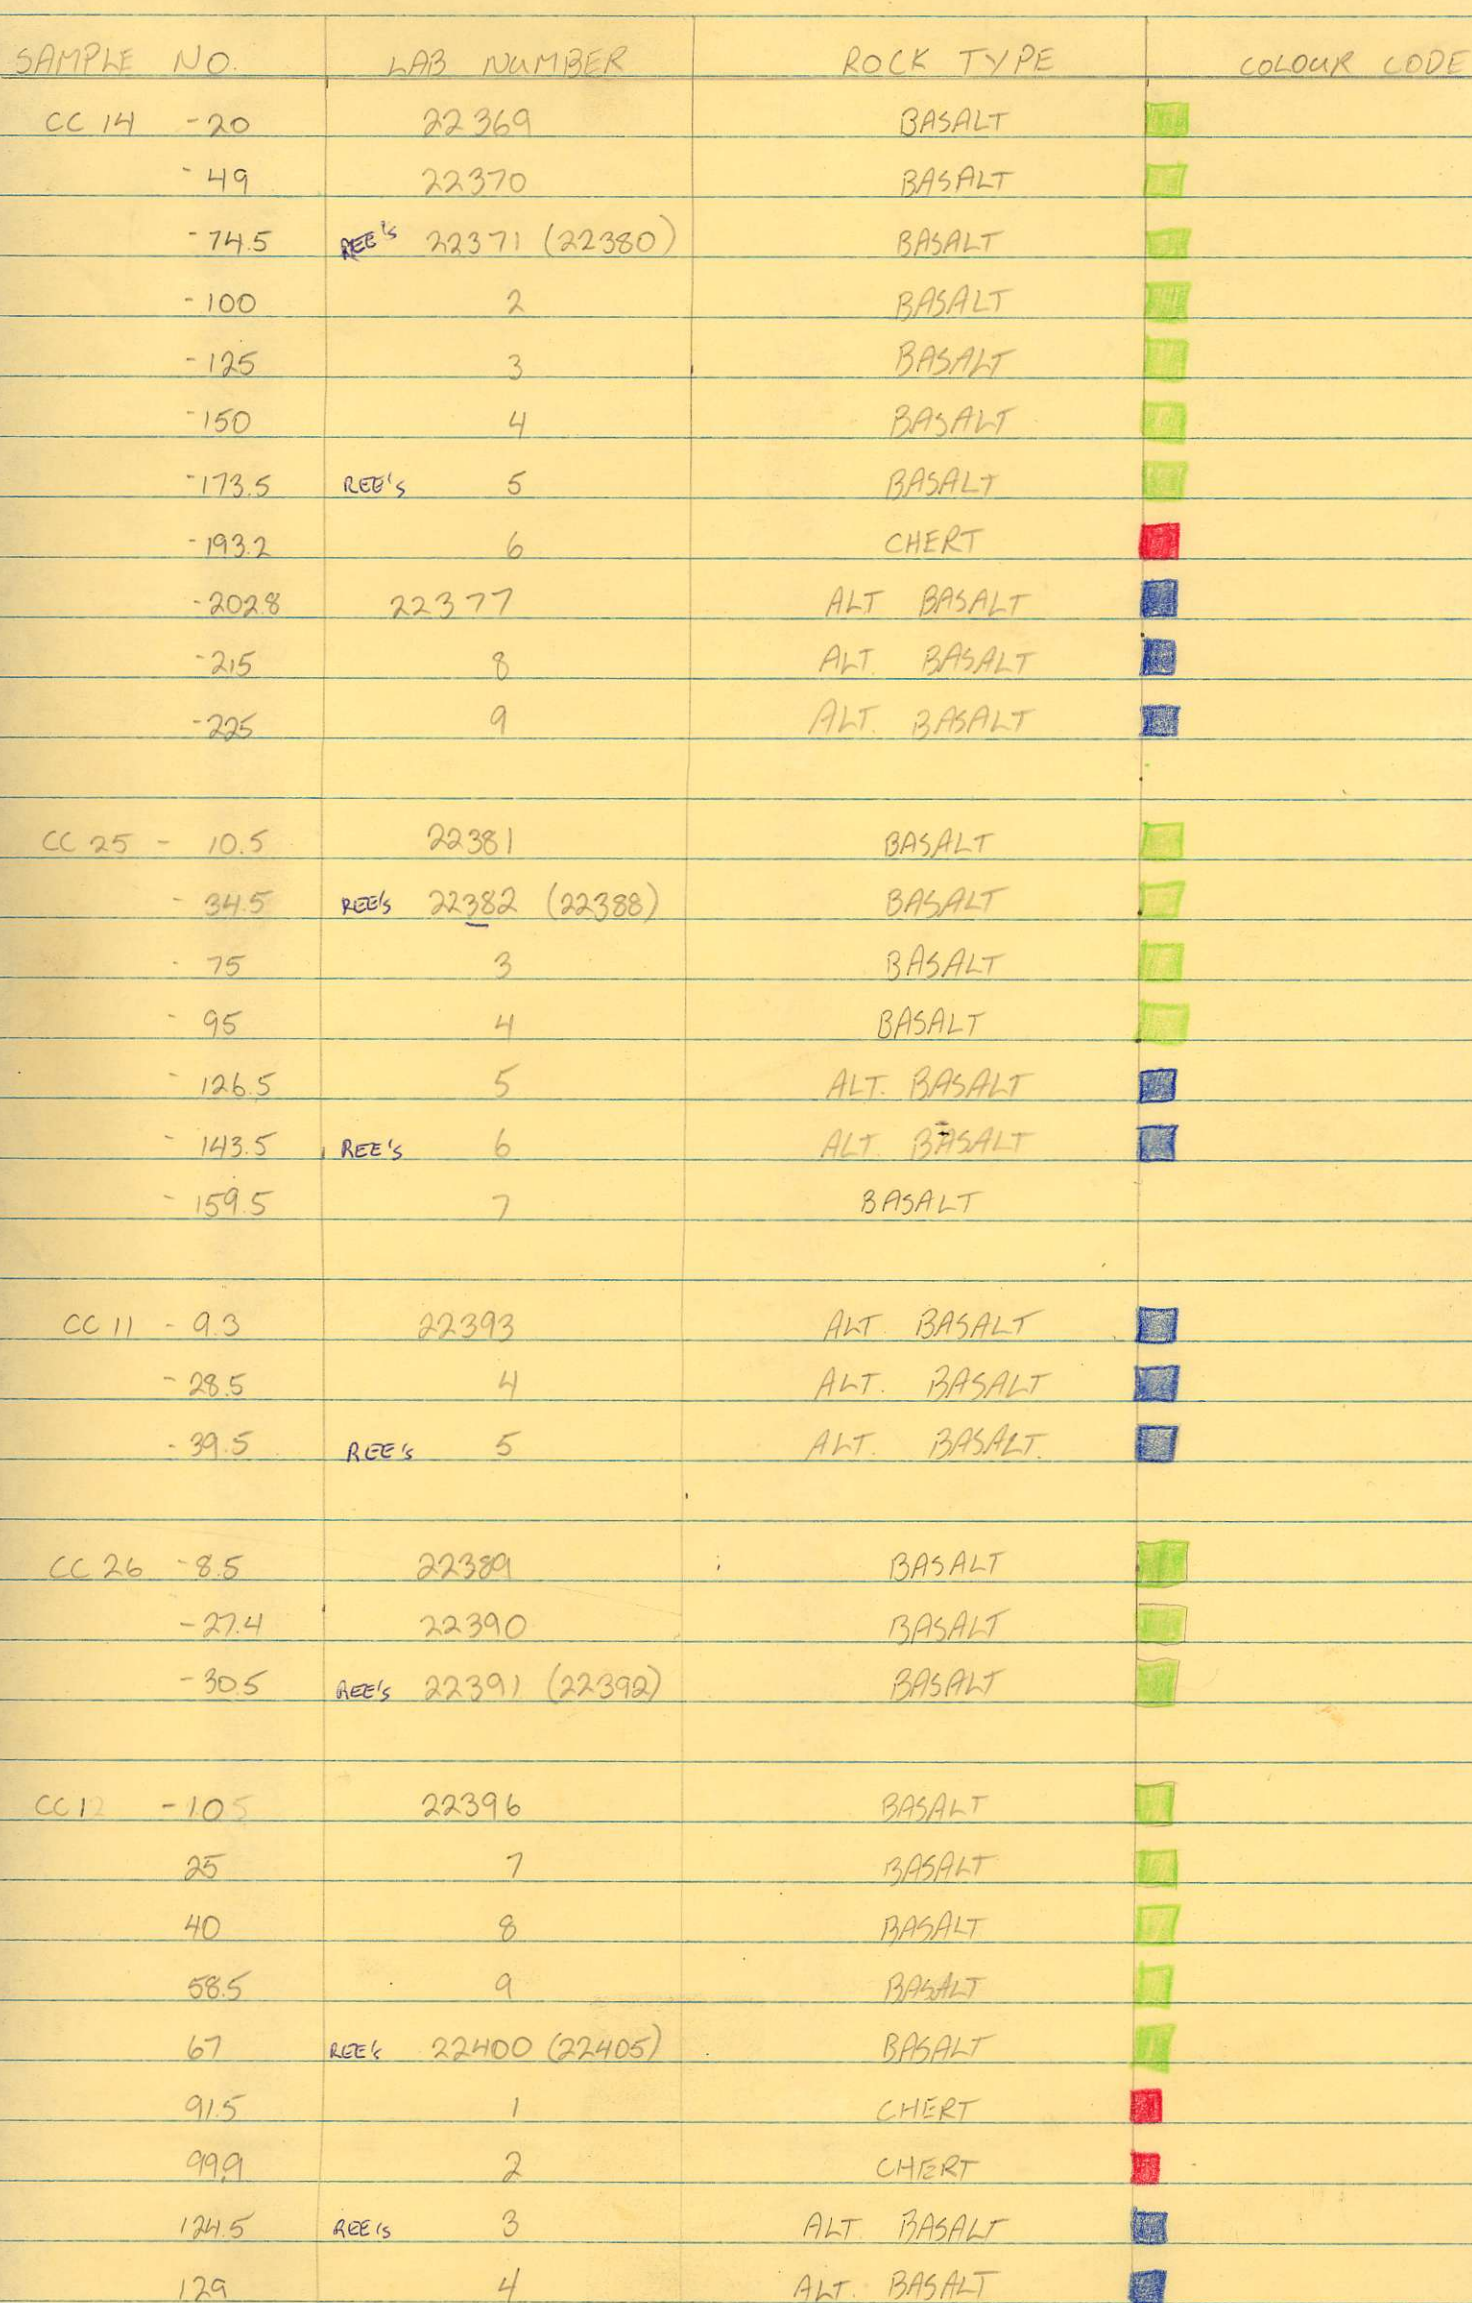 SAMPLE NO. LAB NUMBER ROCK TYPE COLOUR CODE
CC 14 -20 22369 BASALT
-49 22370 BASALT
-74.5 REE's 22371 (22380) BASALT
-100 2 BASALT
-125 3 BASALT
-150 4 BASALT
-173.5 REE's 5 BASALT
-193.2 6 CHERT
-202.8 22377 ALT BASALT
-215 8 ALT. BASALT
-225 9 ALT. BASALT
CC 25 - 10.5 22381 BASALT
- 34.5 REE's 22382 (22388) BASALT
- 75 3 BASALT
- 95 4 BASALT
- 126.5 5 ALT. BASALT
- 143.5 REE's 6 ALT. BASALT
- 159.5 7 BASALT
CC 11 - 9.3 22393 ALT BASALT
- 28.5 4 ALT. BASALT
- 39.5 REE's 5 ALT. BASALT.
CC 26 -8.5 22389 BASALT
-27.4 22390 BASALT
-30.5 REE's 22391 (22392) BASALT
CC12 -10.5 22396 BASALT
25 7 BASALT
40 8 BASALT
58.5 9 BASALT
67 REE's 22400 (22405) BASALT
91.5 1 CHERT
99.9 2 CHERT
124.5 REE's 3 ALT. BASALT
129 4 ALT. BASALT